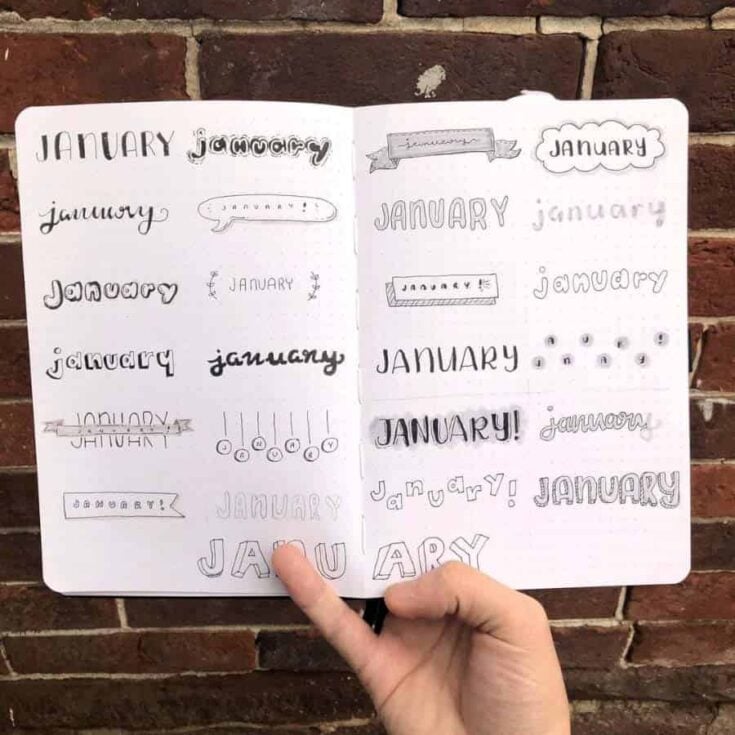 JANUARY january
january JANUARY!
January JANUARY
january january
JANUARY JANUARY! JANUARY
JANUARY! JANUARY
january JANUARY
JANUARY january
JANUARY! january
JANUARY JANUARY!
JANUARY! january
January! JANUARY
JANUARY